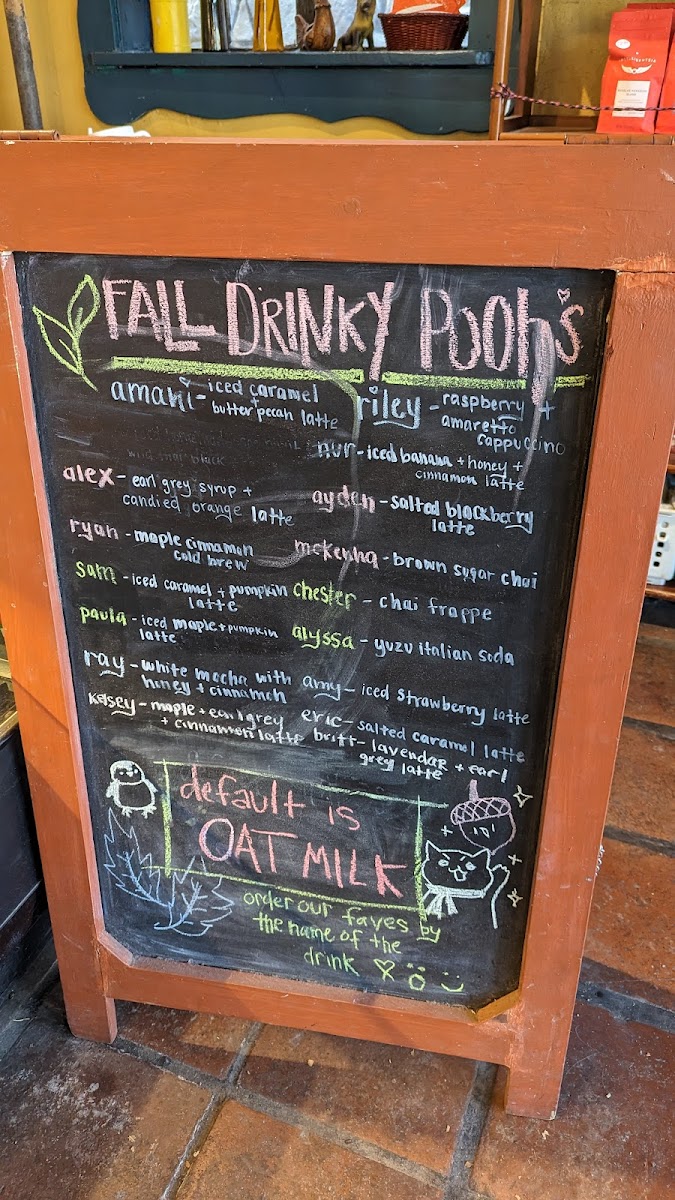 FALL DRINKY POOh's
amani - iced caramel
butter pecan latte
alex - earl grey syrup +
candied orange latte
ryan - maple cinnamon
cold brew
sam - iced caramel + pumpkin
latte
paula - iced maple + pumpkin
latte
ray - white mocha with
honey + cinnamon
kelsey - maple + earl grey
+ cinnamon latte
riley - raspberry +
amaretto
cappuccino
nur - iced banana + honey +
cinnamon latte
ayden - salted blackberry
latte
mckenna - brown sugar chai
chester - chai frappe
alyssa - yuzu italian soda
amy - iced strawberry latte
eric - salted caramel latte
britt - lavendar + earl
grey latte
default is
OAT MILK
order our faves by
the name of the
drink